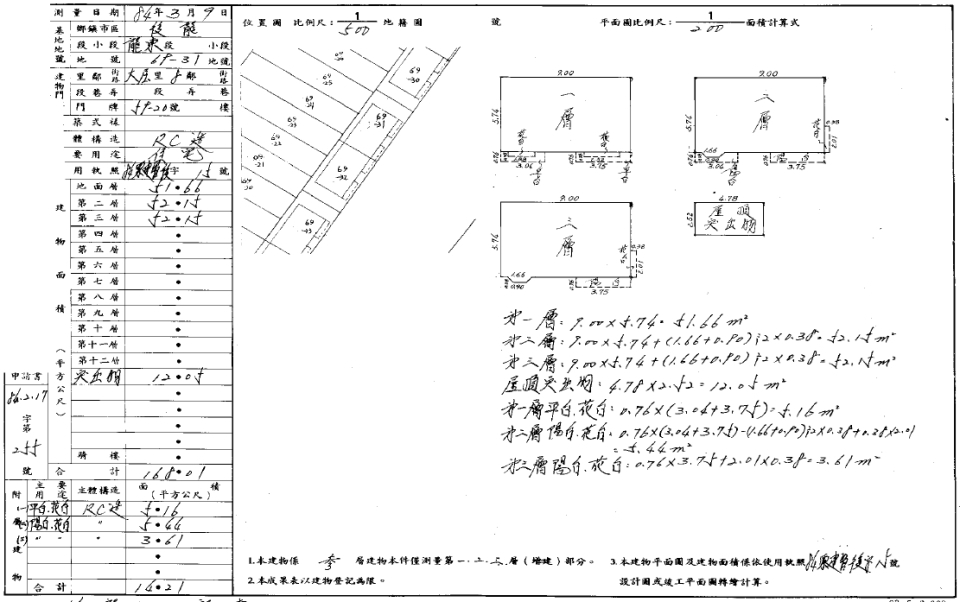 測量日期 84年3月9日
位置圖 比例尺：1/500 地籍圖 號 平面圖比例尺：1/200 面積計算式
基地地號
鄉鎮市區 後龍
段小段 龍東段 小段
地號 69-31 地號
建物門
里鄰 街路 大庄里8鄰 街路
段巷弄 段 弄 巷
門牌 59-20號 樓
築式樣
體構造 RC造
要用途 住宅
用執照 字 15號
建物面積（平方公尺）
地面層 51.66
第二層 52.15
第三層 52.15
第四層 .
第五層 .
第六層 .
第七層 .
第八層 .
第九層 .
第十層 .
第十一層 .
第十二層 .
突出物 12.05
騎樓 .
合計 168.01
申請書
86.2.17
字第
255
號
附屬建物
主要用途 主體構造 面積（平方公尺）
(一)平台.花台 RC造 5.16
(二)陽台.花台 〃 5.44
(三) 〃 〃 〃 3.61
合計 14.21
69-30
69-31
69-32
69-33
69-25
69-24
69-23
69-22
69-21
9.00
5.74
一層
0.76
3.04
3.75
9.00
5.76
二層
1.66
0.76
3.04
3.75
0.38
2.01
9.00
5.76
三層
1.66
0.90
3.75
0.38
2.01
4.78
2.52
屋頂
突出物
第一層：9.00×5.74=51.66m²
第二層：9.00×5.74+(1.66+0.90)÷2×0.38=52.15m²
第三層：9.00×5.74+(1.66+0.90)÷2×0.38=52.15m²
屋頂突出物：4.78×2.52=12.05m²
第一層平台.花台：0.76×(3.04+3.75)=5.16m²
第二層陽台.花台：0.76×(3.04+3.75)-(1.66+0.90)÷2×0.38+0.38×2.01
=5.44m²
第三層陽台.花台：0.76×3.75+2.01×0.38=3.61m²
1.本建物係 參 層建物本件僅測量第一.二.三.層（增建）部分。
2.本成果表以建物登記為限。
3.本建物平面圖及建物面積係依使用執照 15號
設計圖或竣工平面圖轉繪計算。